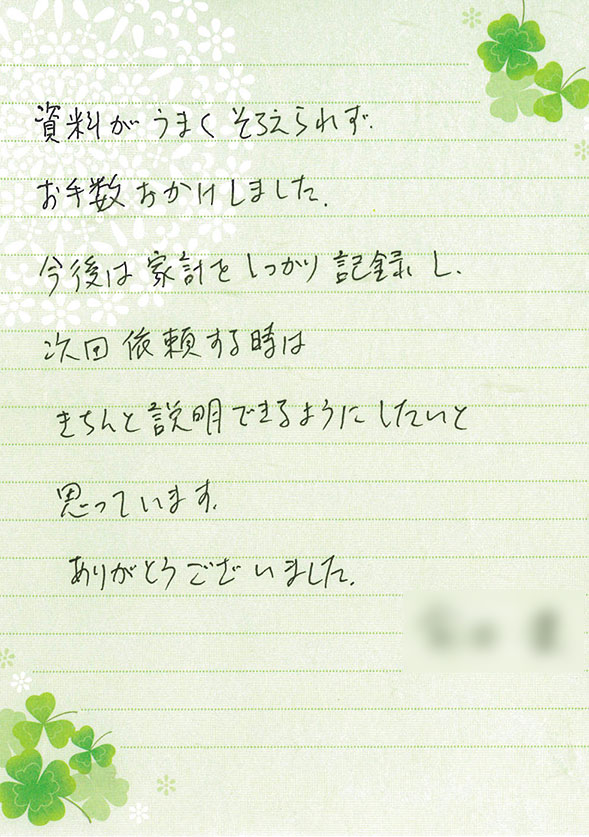 資料がうまくそろえられず、
お手数おかけしました。
今後は家計をしっかり記録し、
次回依頼する時は
きちんと説明できるようにしたいと
思っています。
ありがとうございました。